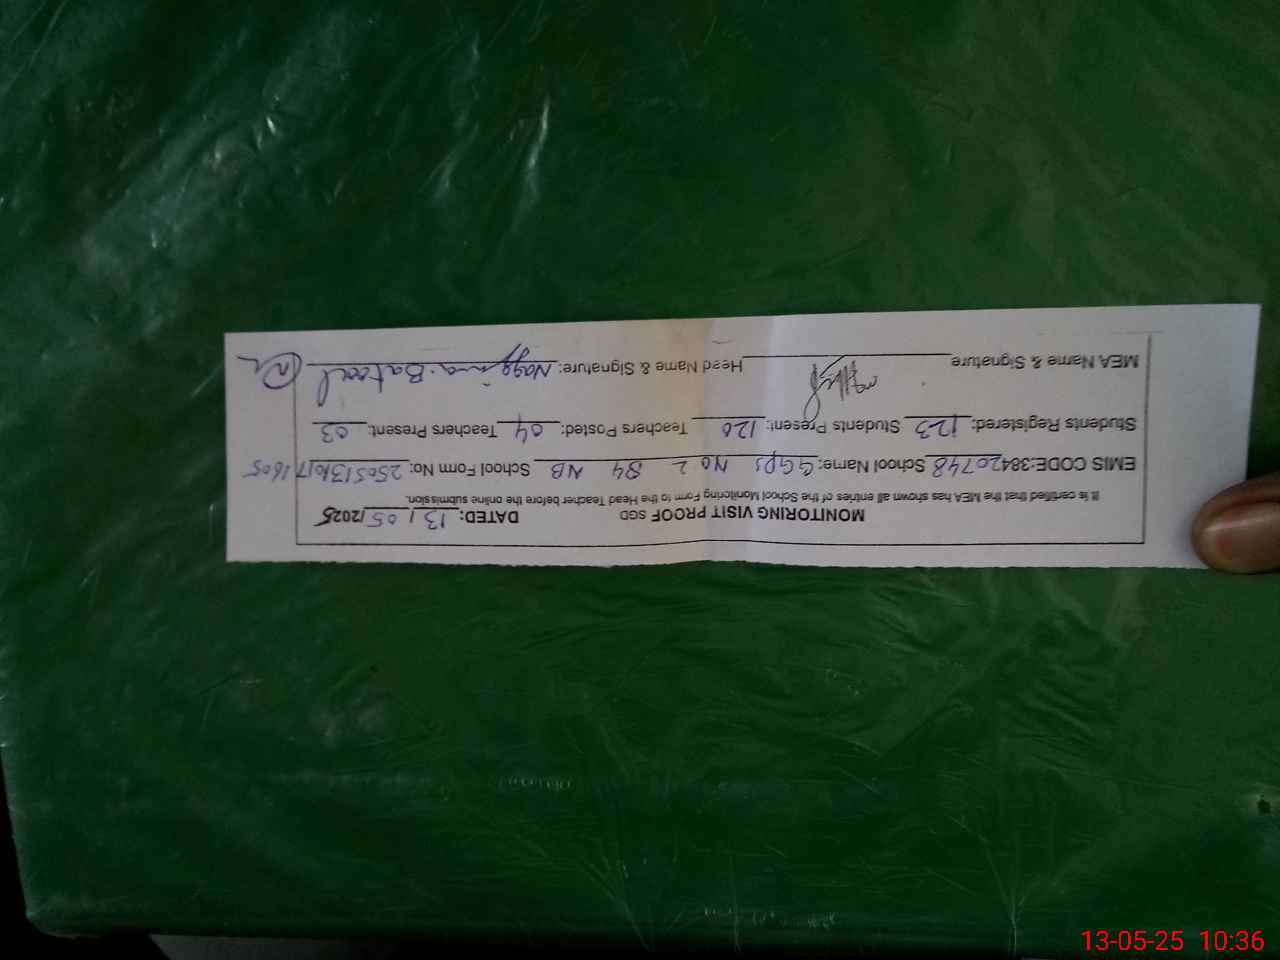 MONITORING VISIT PROOF SGD DATED: 13/05/2025
It is certified that the MEA has shown all entries of the School Monitoring Form to the Head Teacher before the online submission.
EMIS CODE:38420748 School Name: GGPS No 2 84 NB School Form No: 25051310171605
Students Registered: 123 Students Present: 120 Teachers Posted: 04 Teachers Present: 03
MEA Name & Signature Head Name & Signature: Naggina Batool
13-05-25 10:36